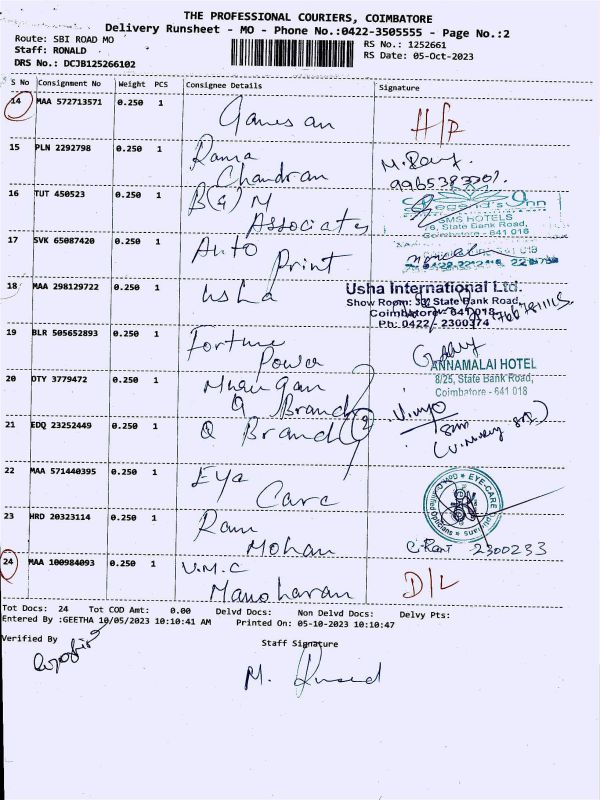 THE PROFESSIONAL COURIERS, COIMBATORE
Delivery Runsheet - MO - Phone No.:0422-3505555 - Page No.:2
Route: SBI ROAD MO
RS No.: 1252661
Staff: RONALD
RS Date: 05-Oct-2023
DRS No.: DCJB125266102
S No Consignment No Weight PCS Consignee Details Signature
14 MAA 572713571 0.250 1 Ganesan
15 PLN 2292798 0.250 1 Rama Chandran
16 TUT 450523 0.250 1 B(4) M Associates
SMS HOTELS
State Bank Road,
Coimbatore - 641 018
17 SVK 65087420 0.250 1 Auto Print
18 MAA 298129722 0.250 1 Usha
Usha International Ltd.
Show Room: State Bank Road,
Coimbatore - 641 018
Ph: 0422 - 2300374
19 BLR 505652893 0.250 1 Fortune Power
ANNAMALAI HOTEL
8/25, State Bank Road,
Coimbatore - 641 018
20 OTY 3779472 0.250 1 Murugan
Q Branch
21 EDQ 23252449 0.250 1 Q Branch
22 MAA 571440395 0.250 1 Eye Care
EYE-CARE
23 HRD 20323114 0.250 1 Ram Mohan 2300233
24 MAA 100984093 0.250 1 V.M.C Manoharan D/L
Tot Docs: 24 Tot COD Amt: 0.00 Delvd Docs: Non Delvd Docs: Delvy Pts:
Entered By :GEETHA 10/05/2023 10:10:41 AM Printed On: 05-10-2023 10:10:47
Verified By
Staff Signature